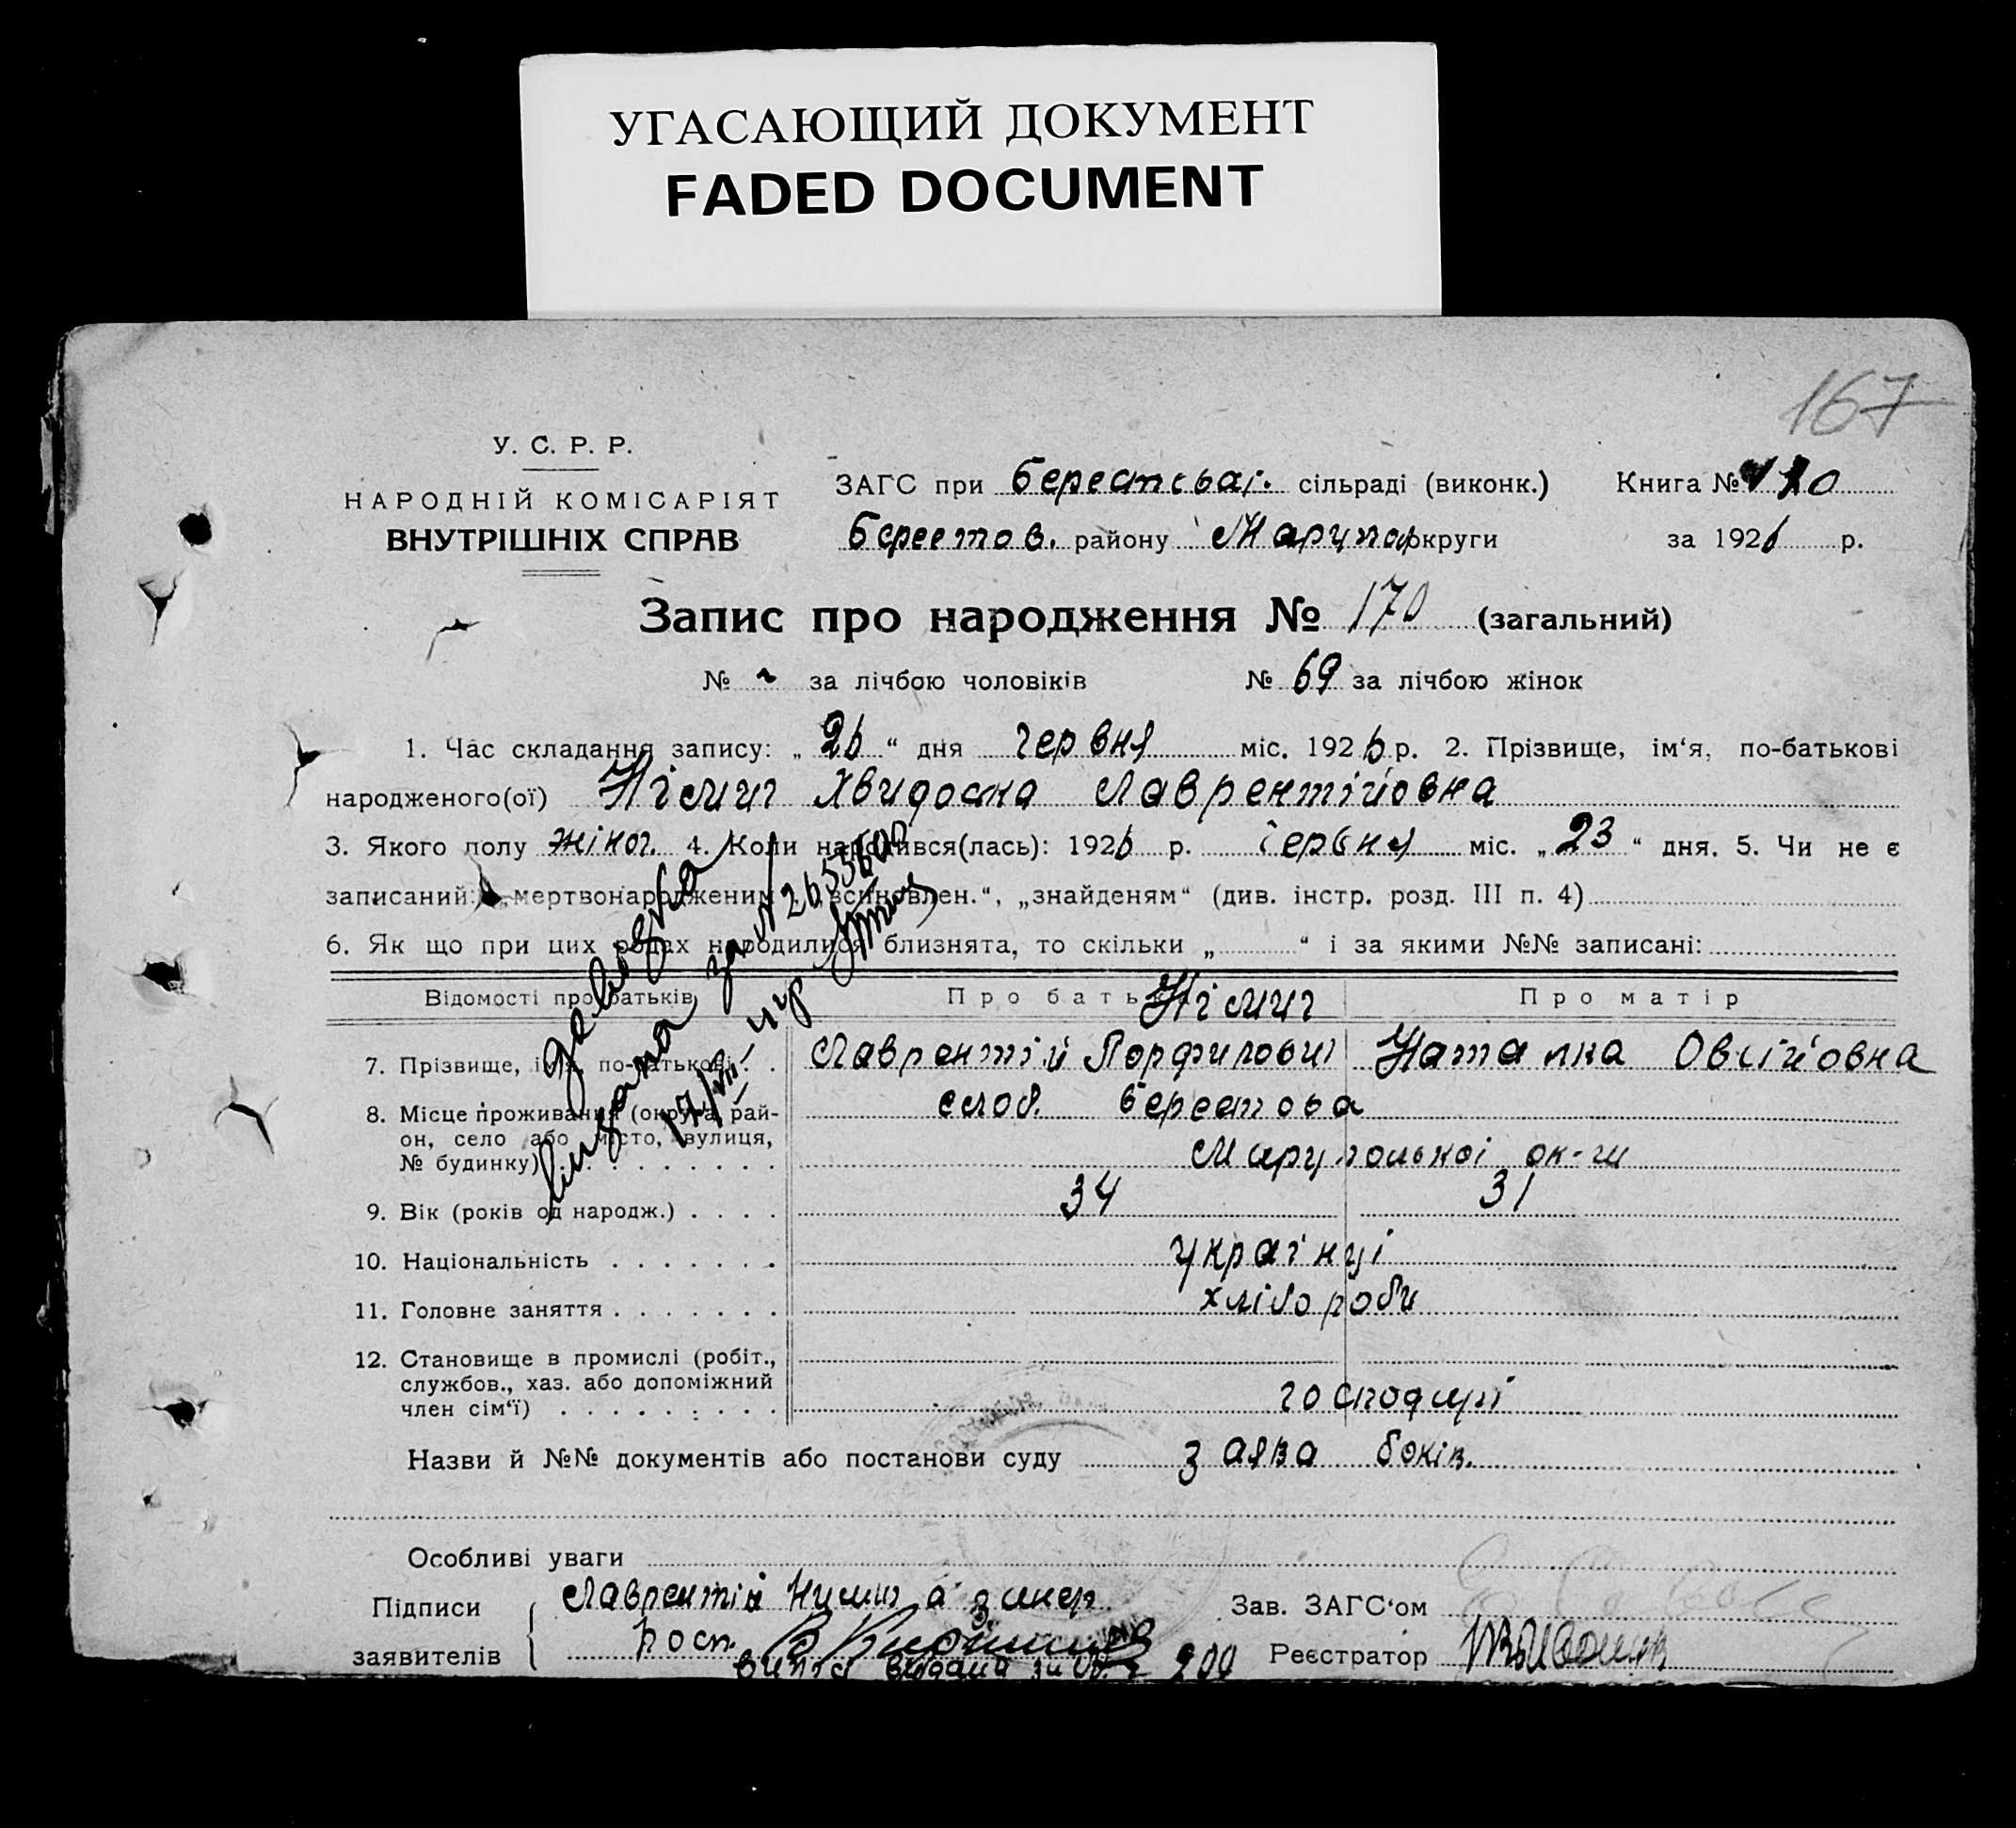 УГАСАЮЩИЙ ДОКУМЕНТ
FADED DOCUMENT
167
У. С. Р. Р.
НАРОДНІЙ КОМІСАРІЯТ
ВНУТРІШНІХ СПРАВ
ЗАГС при Берестовс. сільраді (виконк.) Книга № 170
Берестов. району Маріупол округи за 1926 р.
Запис про народження № 170 (загальний)
№ за лічбою чоловіків № 69 за лічбою жінок
1. Час складання запису: „ 26 “ дня червня міс. 1926 р. 2. Прізвище, ім‘я, по-батькові
народженого(ої) Німич Хвидоска Лаврентійовна
3. Якого полу жіноч. 4. Коли народився(лась): 1926 р. червня міс. „ 23 “ дня. 5. Чи не є
записаний: „мертвонародженим“, „всиновлен.“, „знайденям“ (див. інстр. розд. III п. 4)
6. Як що при цих родах народилися близнята, то скільки „ “ і за якими №№ записані:
Відомості про батьків Про батька Про матір
Німич
7. Прізвище, ім‘я, по-батькові . . Лаврентій Порфилович Наталка Овсійовна
8. Місце проживання (округа, рай- слоб. Берестова
он, село або місто, вулиця,
№ будинку) . . . . . . . . . Маріупольскої ок-ги
9. Вік (років од народж.) . . . . 34 31
10. Національність . . . . . . . українці
11. Головне заняття . . . . . . . хлібороби
12. Становище в промислі (робіт.,
службов., хаз. або допоміжний
член сім‘ї) . . . . . . . . . господарі
Назви й №№ документів або постанови суду заява боків.
Особливі уваги
Підписи Лаврентій Нимич а за Зав. ЗАГС‘ом
заявителів росп. Реєстратор
видана 200